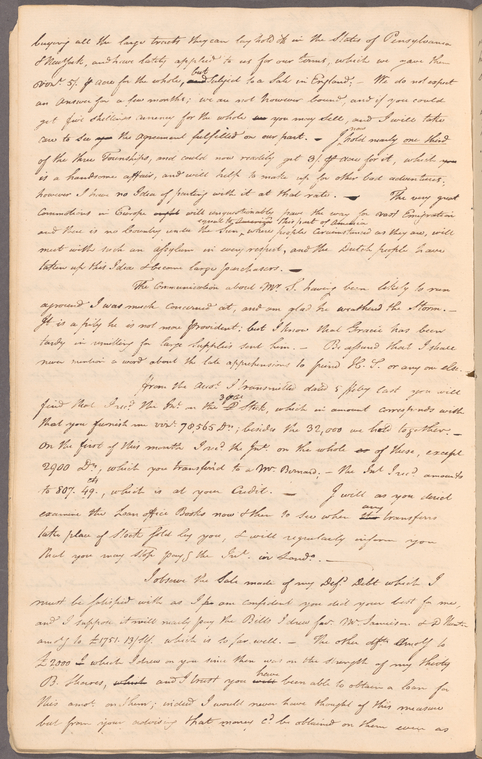 buying all the large tracts they can lay hold of in the States of Pensylvania
& New York, and have lately applied to us for our Terms, which we gave them
viz. 5/. ⅌ acre for the whole, but subject to a Sale in England. – We do not expect
an answer for a few months; we are not however bound, and if you could
get five shillings sooner for the whole you may sell, and I will take
care to see the agreement fulfilled on our part. – I now hold nearly one third
of the three Townships, and could now readily get 3/. ⅌ acre for it, which
is a handsome affair, and will help to make up for other bad adventures;
however I have no Idea of parting with it at that rate. – The very great
Commotions in Europe will unquestionably pave the way for vast Emigration
and there is no Country under the Sun, equal to America this part of America where people Circumstanced as they are, will
meet with such an assylum in every respect, and the Dutch people have
taken up this Idea & become large purchasers. –
The Communication about Mr. S. having been likely to run
aground I was much concerned at, and am glad he weatherd the Storm. –
It is a pity he is not more provident, but I know that Gracie has been
tardy in remitting for large supplies sent him. – Be assured that I shall
never mention a word about the late apprehensions to friend H. S. or any one else.
from the Acct. I transmitted dated 5 feby last you will
find that I recd. the Int. on the 3 ⅌Ct. Stock, which in amount corresponds with
that you furnish me vizt. 70,565 Drs., besides the 32,000 we hold together. –
On the first of this month I recd. the Int. on the whole of these, except
2900 Drs., which you transferd to a Mr. Bernard. – the Int. recd. amounts
to 807.49 cts., which is at your Credit. – I will as you desired
examine the Loan Office Books now & then to see when any transfers
take place of Stock sold by you, & will regularly inform you
that you may stop payg. the Int. in Londo. –
I observe the Sale made of my Defd. Debt which I
must be satisfied with as I am confident you did your best for me,
and I suppose it will nearly pay the Bills I drew favr. Mr. Jamieson & D Newton
amotg. to £1751.13/ Stg, which is so far well. – The other dfts Amotg to
£2000 which I drew on you since then was on the strength of my thirty
B. Shares, and I trust you have been able to obtain a loan for
this amot. on them; indeed I would never have thought of this measure
but from your advising that money cd. be obtained on them even as